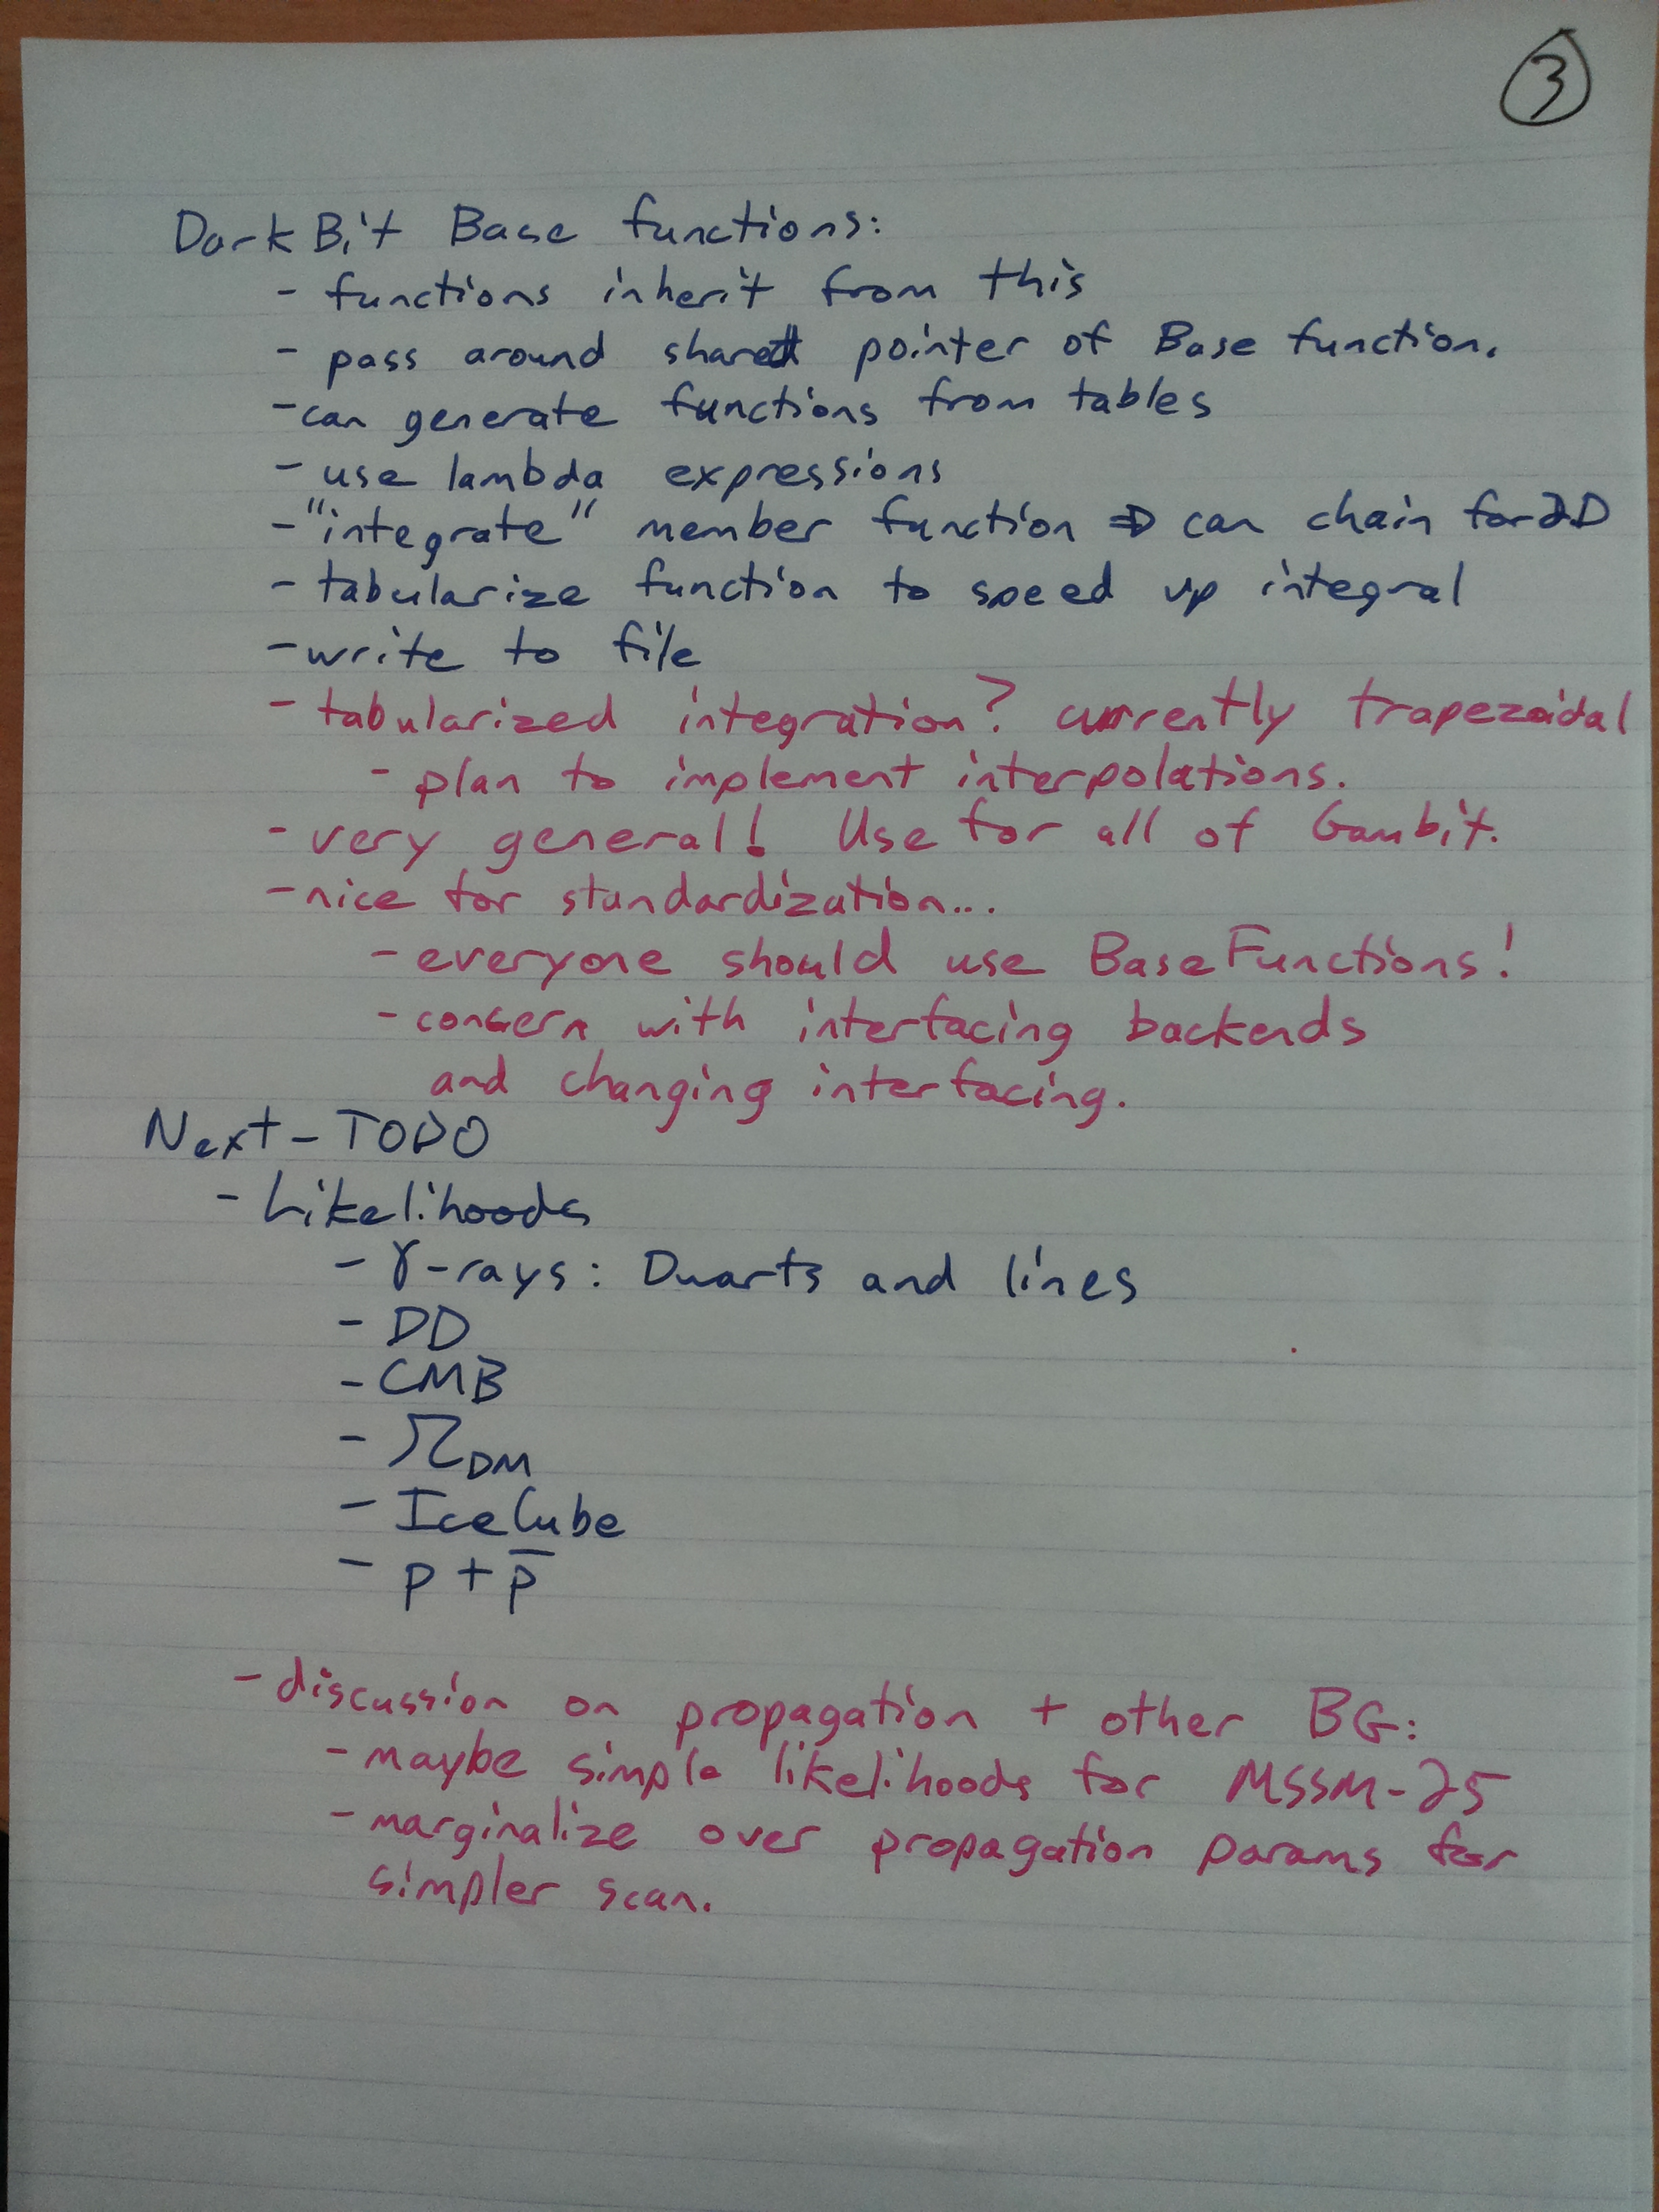 3
DarkBit Base functions:
- functions inherit from this
- pass around shared pointer of Base function.
- can generate functions from tables
- use lambda expressions
- "integrate" member function ⇒ can chain for 2D
- tabularize function to speed up integral
- write to file
- tabularized integration? currently trapezoidal
- plan to implement interpolations.
- very general! Use for all of Gambit.
- nice for standardization...
- everyone should use BaseFunctions!
- concern with interfacing backends
and changing interfacing.
Next - TODO
- Likelihoods
- γ-rays: Dwarfs and lines
- DD
- CMB
- Ω_DM
- IceCube
- p + p̄
- discussion on propagation + other BG:
- maybe simple likelihoods for MSSM-25
- marginalize over propagation params for
simpler scan.